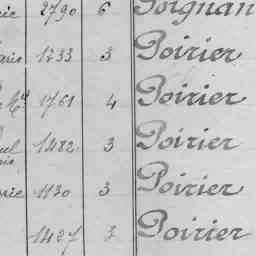 rie 2790 6 Poignan
arie 1733 3 Poirier
1761 4 Poirier
1482 3 Poirier
rie 1130 3 Poirier
1427 3 Poirier